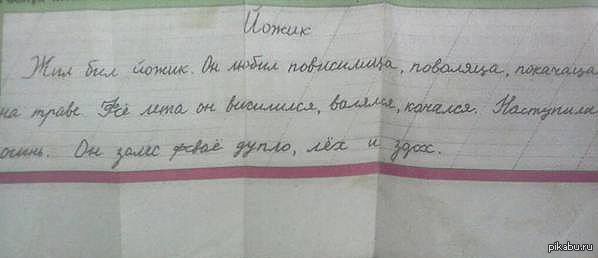 Йожик
Жил бил йожик. Он любил повисилица, поваляца, покачаца
на траве. Fсё лета он висилился, валялся, качался. Наступила
осинь. Он залес fсваё дупло, лёх и здох.
pikabu.ru